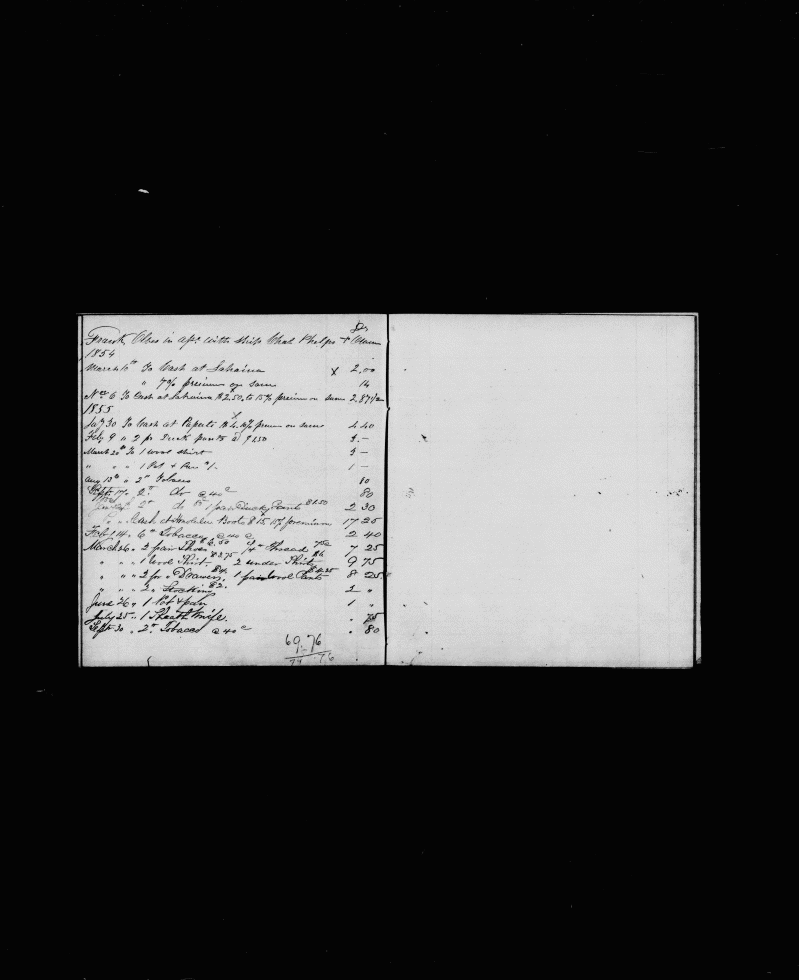 Dr
Frank in a/c with Ship Chas Phelps & Owners
1854
March 10th To Cash at Lahaina X 2,00
" 7% preium on same 14
6 To Cash at Lahaina $2.50 to 15% preium on same 2.87 1/2
1855
30 To Cash at $4. % prem on same 4 40
Feb 9 " 2 pr Duck pants @ $1.50 3. —
March 20th To 1 wool shirt 3 —
" " " 1 Pot & Pan $1. 1 —
Aug 13th " 2 lb Tobacco 80
17 " 2 lb do @ 40c 80
2 lb do 1 pair Ducky Pants $1.50 2 30
" " Cash at Boots $15 15% premium 17 25
Feb 14 " 6 lb Tobacco @ 40 c 2 40
March 26 " 2 pair Shoes Thread 7 25
" " " 1 Wool Shirt. $3.75 2 under Shirts $6 9 75
" " " 2 pr " Drawers $4. 1 pair wool Pants $4.25 8 25
" " " 2 " Stockings $2. 2 "
June 26 " 1 Pot & pan 1 "
July 25 " 1 Sheath Knife. " 75
Sept 30 " 2 lb Tobacco @ 40 c " 80
69.76